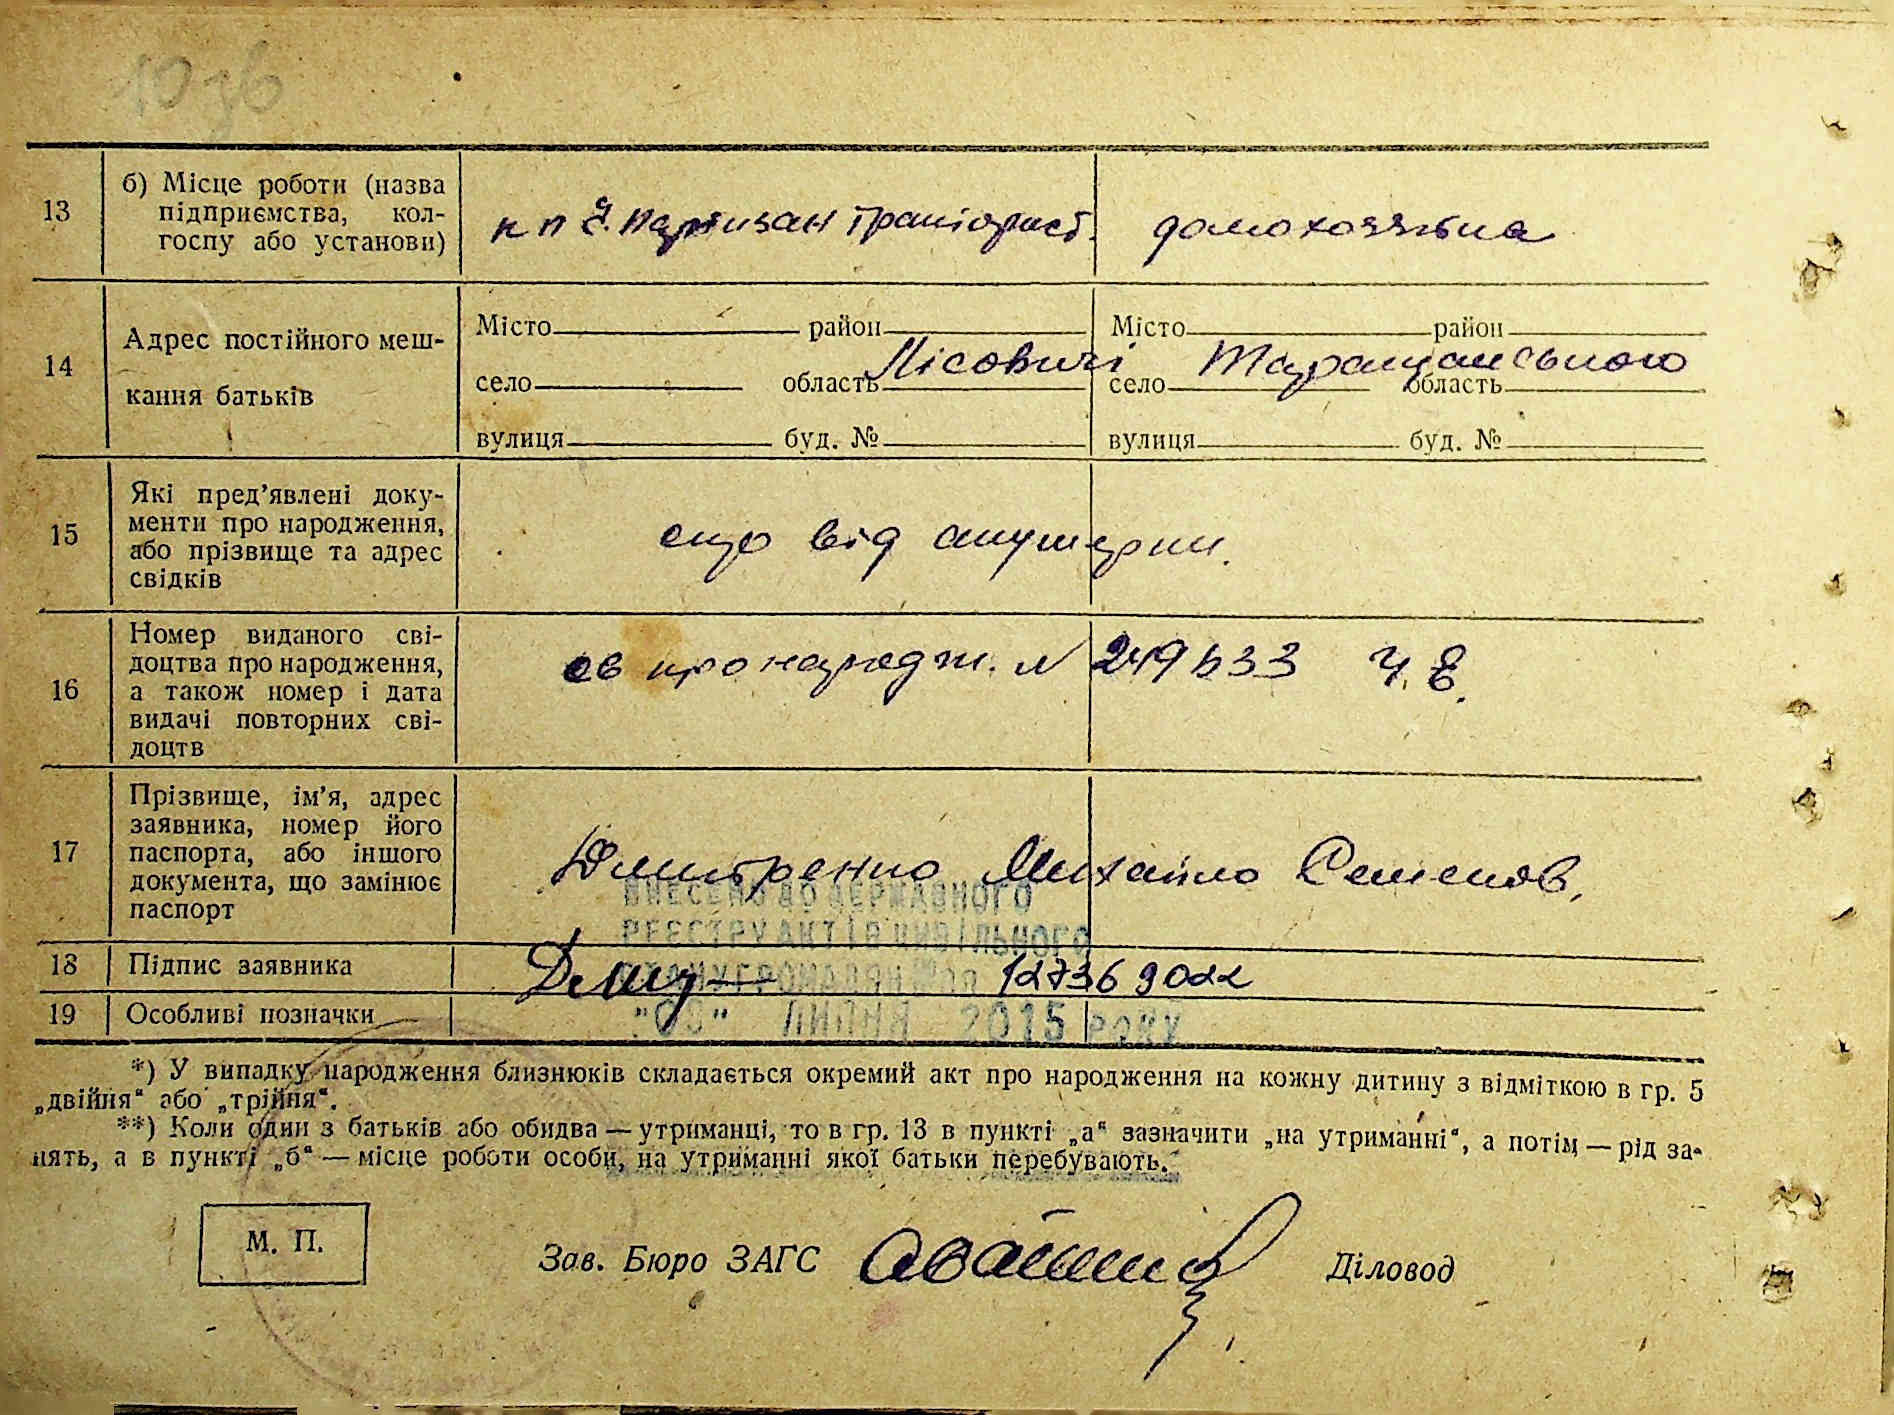 13
б) Місце роботи (назва
підприємства, кол-
госпу або установи)
Партизан Тракторист.
домохозяйка
14
Адрес постійного меш-
кання батьків
Місто район
Місто район
Лісовичі Таращанського
село область
село область
вулиця буд. №
вулиця буд. №
15
Які пред’явлені доку-
менти про народження,
або прізвище та адрес
свідків
від акушерки.
16
Номер виданого сві-
доцтва про народження,
а також номер і дата
видачі повторних сві-
доцтв
св про народж. №
17
Прізвище, ім’я, адрес
заявника, номер його
паспорта, або іншого
документа, що замінює
паспорт
Дмитренко Михайло Семенов.
ВНЕСЕНО ДО ДЕРЖАВНОГО
РЕЄСТРУ АКТІВ ЦИВІЛЬНОГО
18
Підпис заявника
СТАНУ ГРОМАДЯН
19
Особливі позначки
ЛИПНЯ 2015 РОКУ
*) У випадку народження близнюків складається окремий акт про народження на кожну дитину з відміткою в гр. 5
„двійня“ або „трійня“.
**) Коли один з батьків або обидва — утриманці, то в гр. 13 в пункті „а“ зазначити „на утриманні“, а потім — рід за-
нять, а в пункті „б“ — місце роботи особи, на утриманні якої батьки перебувають.
М. П.
Зав. Бюро ЗАГС
Діловод